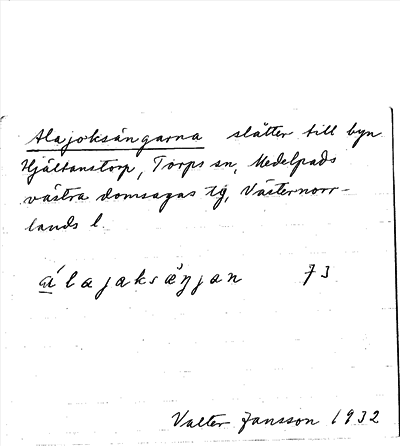 Alajoksängarna slåtter till byn
Hjältanstorp, Torps sn, Medelpads
västra domsagas tg, Västernorr-
lands l.
álajaksäŋjan 73
Valter Jansson 1932